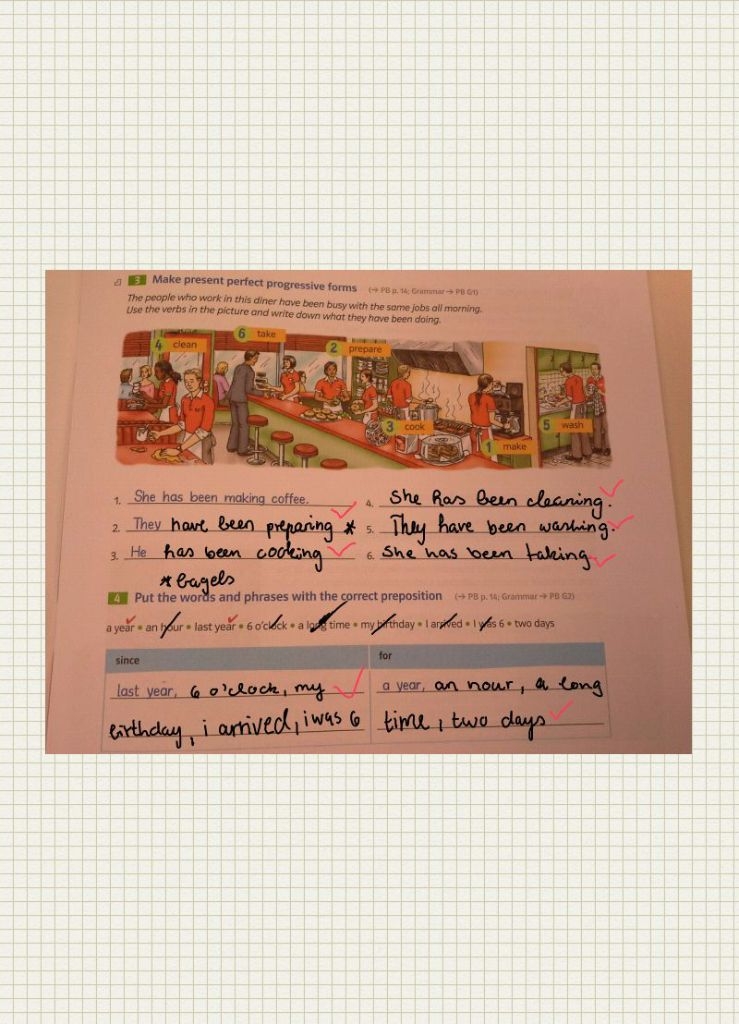 3 Make present perfect progressive forms (→ PB p. 14; Grammar → PB G1)
The people who work in this diner have been busy with the same jobs all morning.
Use the verbs in the picture and write down what they have been doing.
6 take
4 clean
2 prepare
3 cook
5 wash
1 make
1. She has been making coffee.
2. They have been preparing *
3. He has been cooking
* bagels
4. She has been cleaning.
5. They have been washing.
6. She has been taking
4 Put the words and phrases with the correct preposition (→ PB p. 14; Grammar → PB G2)
a year • an hour • last year • 6 o'clock • a long time • my birthday • I arrived • I was 6 • two days
since
last year, 6 o'clock, my
birthday, i arrived, i was 6
for
a year, an hour, a long
time, two days